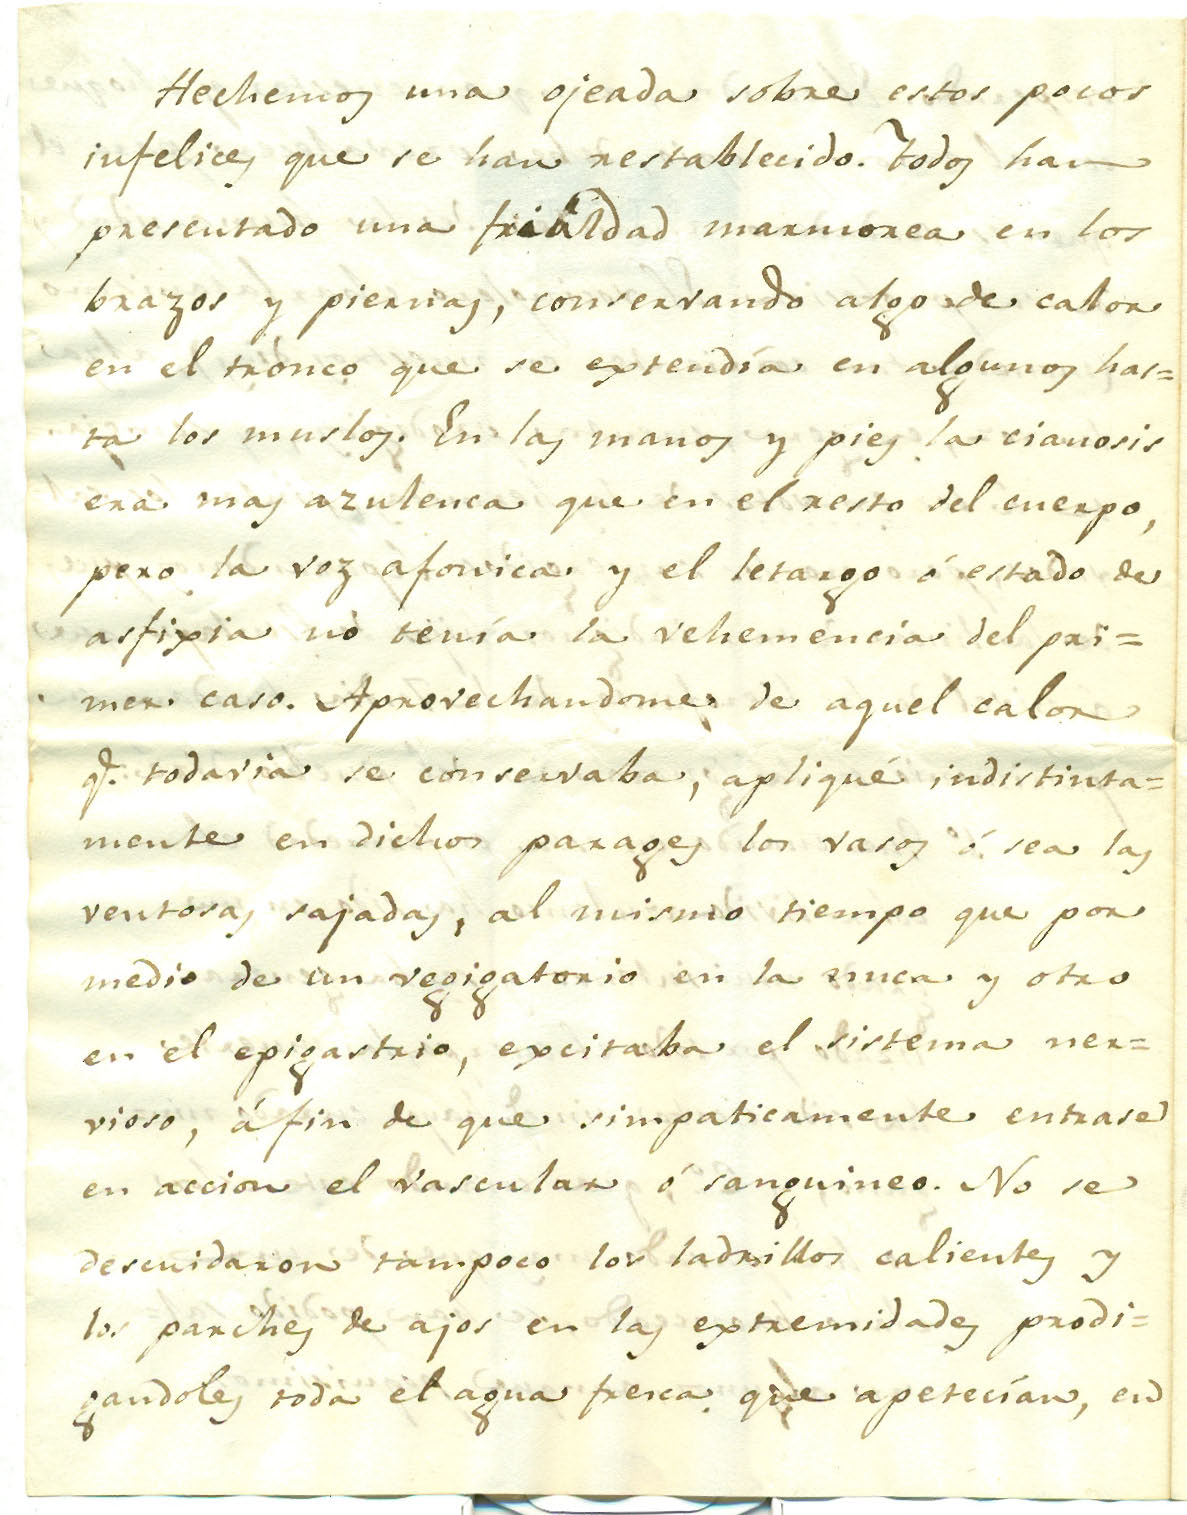 Hechemos una ojeada sobre estos pocos
infelices que se han restablecido. Todos han
presentado una frialdad marmorea en los
brazos y piernas, conservando algo de calor
en el trónco que se extendía en algunos has=
ta los muslos. En las manos y pies la cianosis
era mas azulenca que en el resto del cuerpo,
pero la voz afonica y el letargo ó estado de
asfixia no tenía la vehemencia del pri=
mer caso. Aprovechandome de aquel calor
q.e todavia se conservaba, apliqué indistinta=
mente en dichos parages los vasos ó sea las
ventosas sajadas, al mismo tiempo que por
medio de un vegigatorio en la nuca y otro
en el epigastrio, excitaba el sistema ner=
vioso, á fin de que simpaticamente entrase
en accion el vascular ó sanguineo. No se
descuidaron tampoco los ladrillos calientes y
los parches de ajos en las extremidades prodi=
gandoles toda el agua fresca que apetecían, en